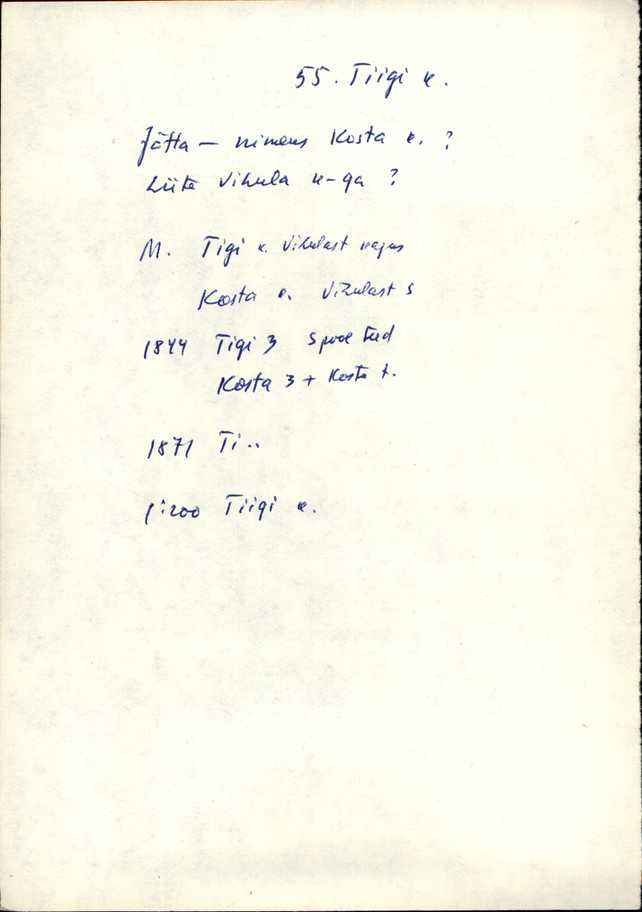 55. Tiigi k.
Jätta — nimeks Kosta k. ?
Liita Vihula k-ga ?
M. Tigi k. Vihulast kagus
Kosta k. Vihulast S
1844 Tigi 3 Spool
Kosta 3 + Kosta t.
1871 Ti..
1:200 Tiigi k.